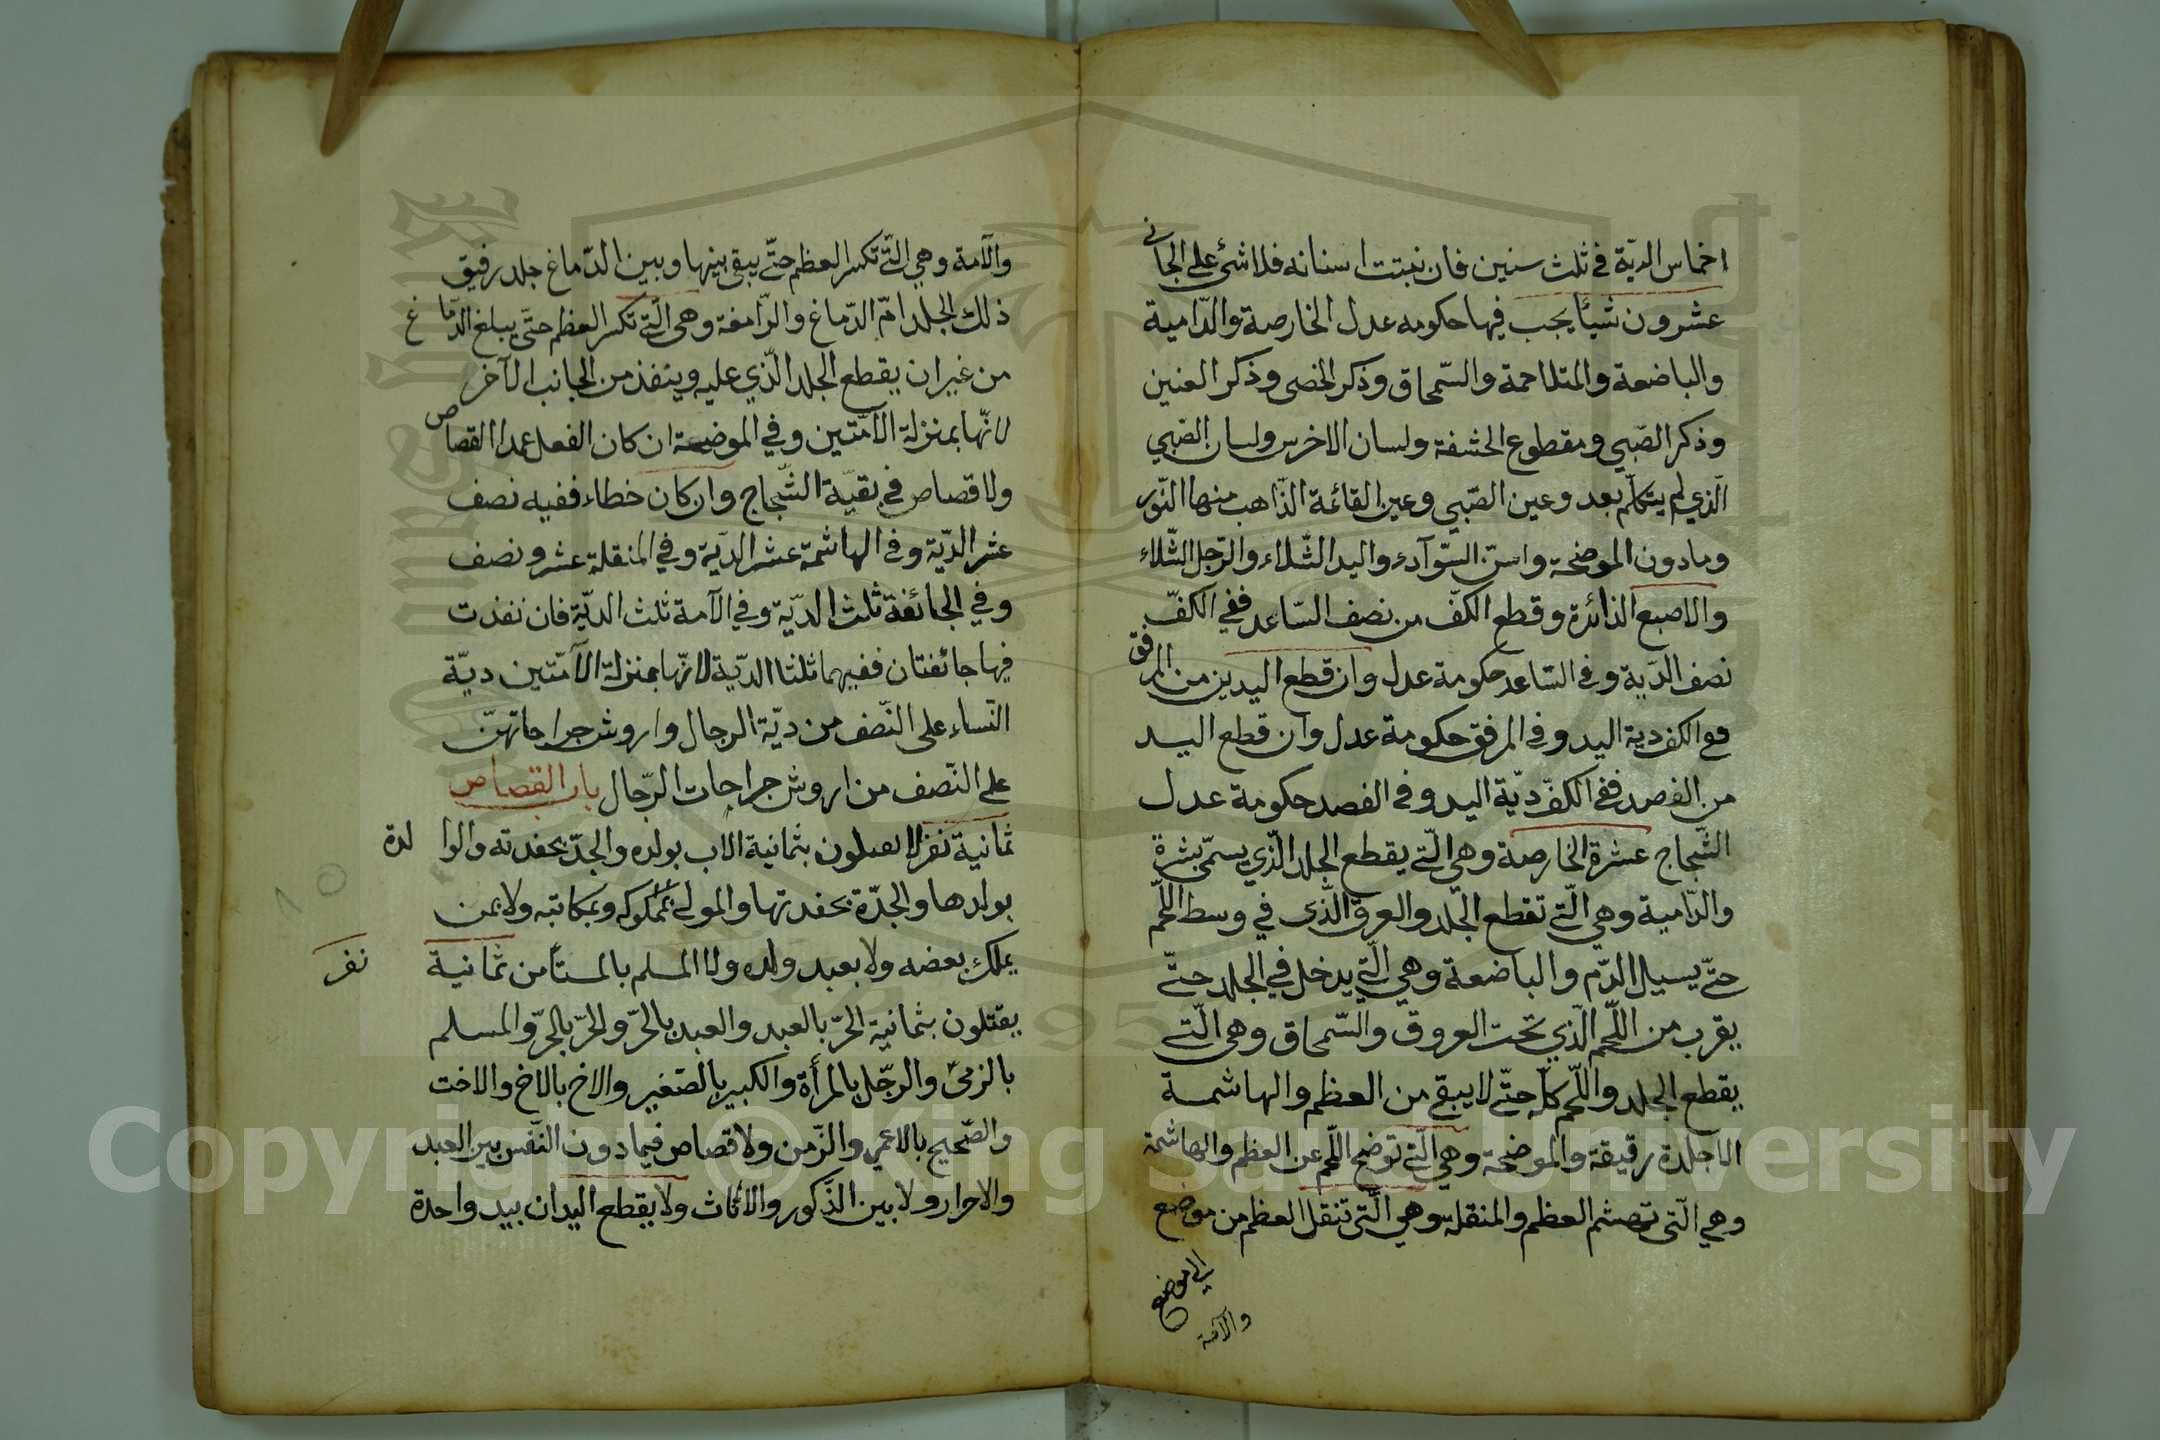 اخماس الديّة في ثلث سنين فان نبتت اسنانه فلا شئ على الجانى
عشرون شيئًا يجب فيها حكومه عدل الخارصة والدّامية
والباضعة والمتلاحمة والسّمحاق وذكر الخصى وذكر العنين
وذكر الصّبي ومقطوع الحشفة ولسان الاخرس ولسان الصّبي
الّذي لم يتكلّم بعد وعين الصّبّي وعين القائمة الذّاهب منها النّور
وما دون الموضحة واسنّ السّوآدء واليد الشّلاء والرّجل الشّلاء
والاصبع الذائرة وقطع الكفّ من نصف السّاعد ففي الكفّ
نصف الديّة وفي السّاعد حكومة عدل وان قطع اليدين من المرفق
فع الكف دية اليد وفي المرفق حكومة عدل وان قطع اليد
من الفصد ففي الكفّ ديّة اليد وفي الفصد حكومة عدل
الشّجاج عشرة الخارصة وهي الّتي يقطع الجلد الّذي يسمّى بشرة
والدّامية وهي الّتي تقطع الجلد والعرق الّذى في وسط اللّحم
حتّى يسيل الدّم والباضعة وهي الّتي يدخل في الجلد حتّى
يقرب من اللّحم الّذي تحت العروق والسّمحاق وهى الّتي
يقطع الجلد واللّحم كلّه حتّى لا يبقى من العظم والهاشمة
الا جلدة رقيقة والموضحة وهي الّتي توضح اللّحم عن العظم والهاشمة
وهي الّتى تهشم العظم والمنقلة وهي الّتى تنقل العظم من موضع
الى موضع
والآمة
والآمة وهي الّتي تكسر العظم حتّى يبقى بينها وبين الدّماغ جلد رقيق
ذلك الجلد امّ الدّماغ والرّامغة وهى الّتي تكسر العظم حتّى يبلغ الدّماغ
من غير ان يقطع الجلد الّذي عليه وينفذ من الجانب الآخر
لانّها بمنزلة الآمّتين وفي الموضحة ان كان الفعل عمدا القصاص
ولا قصاص في بقيّة الشّجاج وان كان خطاء ففيه نصف
عشر الديّة وفي الهاشمّة عشر الديّة وفي المنقلة عشر ونصف
وفي الجائفة ثلث الديّة وفي الآمة ثلث الديّة فان نفذت
فيها جائفتان ففيهما ثلثا الديّة لانّها بمنزلة الآمّتين ديّة
النّساء على النّصف من ديّة الرجال واروش جراحاتهنّ
على النّصف من اروش جراحات الرّجال باب القصاص
ثمانية نفر لا يقتلون بثمانية الاب بولده والجدّ بحفدته والوالدة
بولدها والجدّة بحفدتها والمولى بمملوكه وبمكاتبه ولا بمن
يملك بعضه ولا بعبد ولده ولا المسلم بالمستأمن ثمانية نفر
يقتلون بثمانية الحرّ بالعبد والعبد بالحرّ والحرّ بالحرّ والمسلم
بالزمىّ والرجّل بالمرأة والكبير بالصّغير والاخ بالاخ والاخت
والصّحيح بالاعمى والزّمن ولا قصاص فيما دون النّفس بين العبد
والاحرار ولا بين الذّكور والأناث ولا يقطع اليدان بيد واحدة